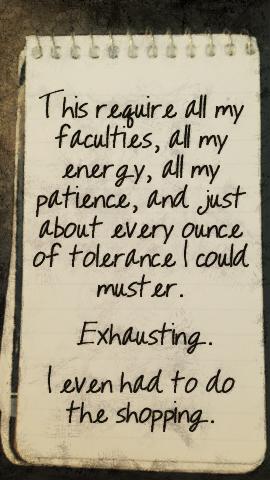 This require all my
faculties, all my
energy, all my
patience, and just
about every ounce
of tolerance I could
muster.
Exhausting.
I even had to do
the shopping.